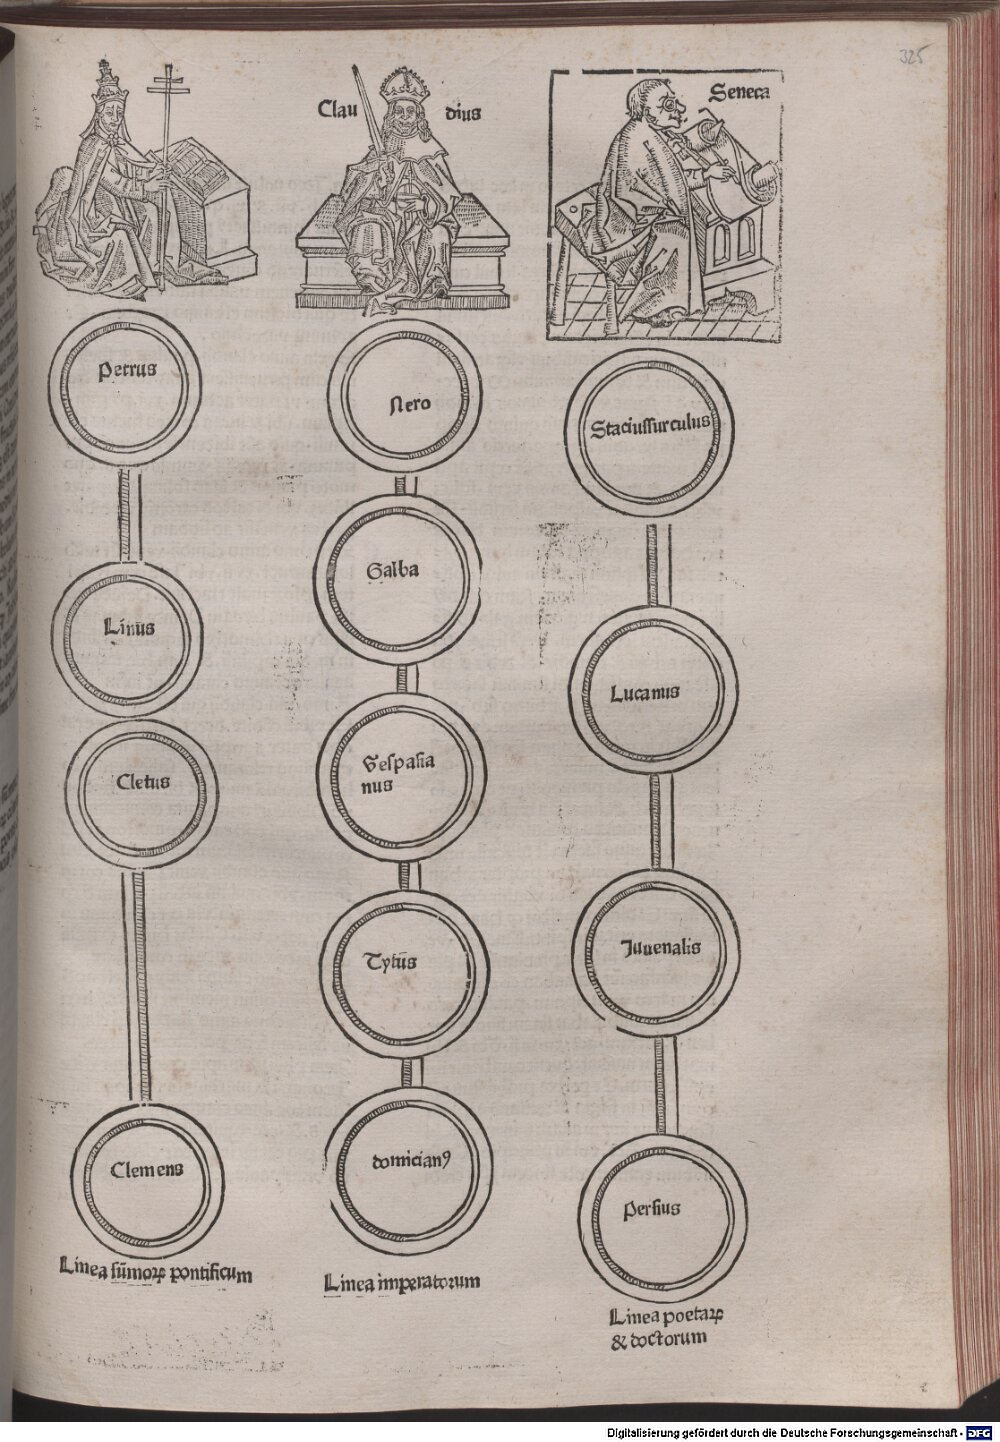 325
Clau dius
Seneca
Petrus
Linus
Cletus
Clemens
Linea sūmoꝝ pontificum
Nero
Galba
Vespasia
nus
Tytus
domicianꝰ
Linea imperatorum
Staciussurculus
Lucanus
Iuuenalis
Persius
Linea poetaꝝ
& doctorum
Digitalisierung gefördert durch die Deutsche Forschungsgemeinschaft - DFG